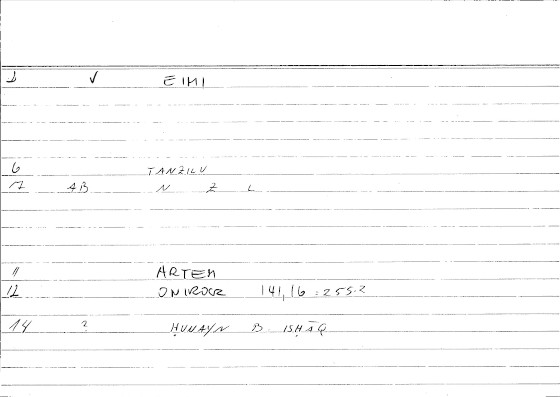 1 √ EIMI
6 TANZILU
7 AB N Z L
11 ARTEM
12 ONIROCR 141,16 = 255.2
14 ? ḤUNAYN B ISḤĀQ